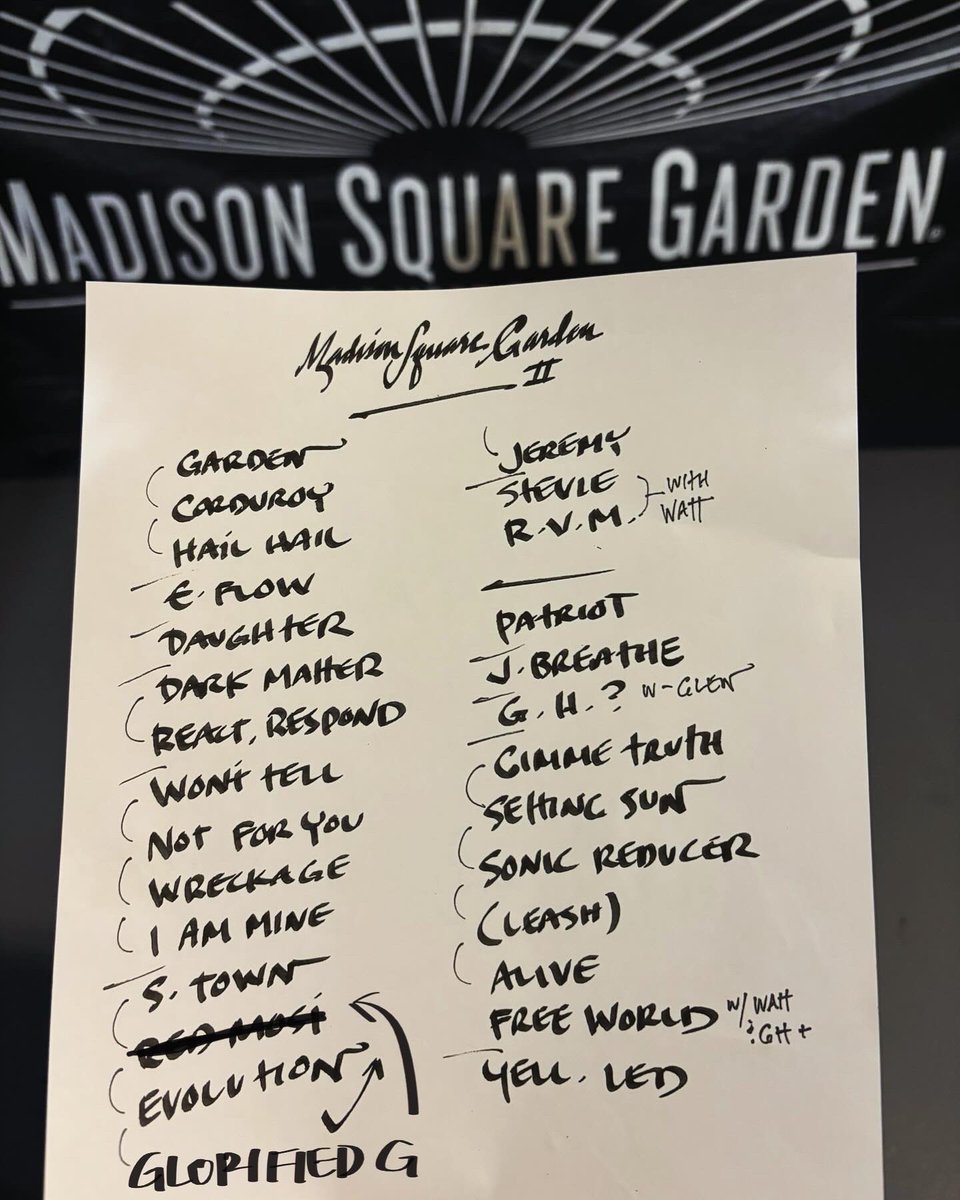 MADISON SQUARE GARDEN®
Madison Square Garden
II
GARDEN
CORDUROY
HAIL HAIL
E. FLOW
DAUGHTER
DARK MATTER
REACT, RESPOND
WON'T TELL
NOT FOR YOU
WRECKAGE
I AM MINE
S. TOWN
RED MOSI
EVOLUTION
GLORIFIED G
JEREMY
STEVIE
R.V.M.
WITH
WATT
PATRIOT
J. BREATHE
G. H. ? W-GLEN
GIMME TRUTH
SETTING SUN
SONIC REDUCER
(LEASH)
ALIVE
FREE WORLD W/ WATT
? GH +
YELL. LED